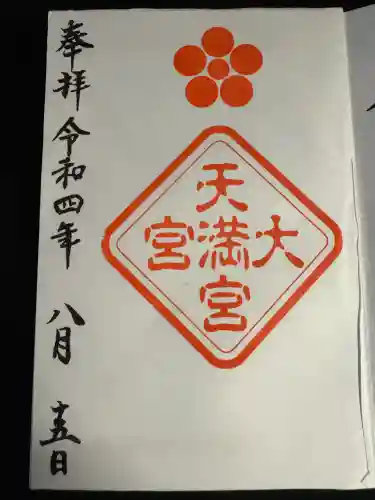 大宮
天満宮
奉拝 令和四年 八月 十五日